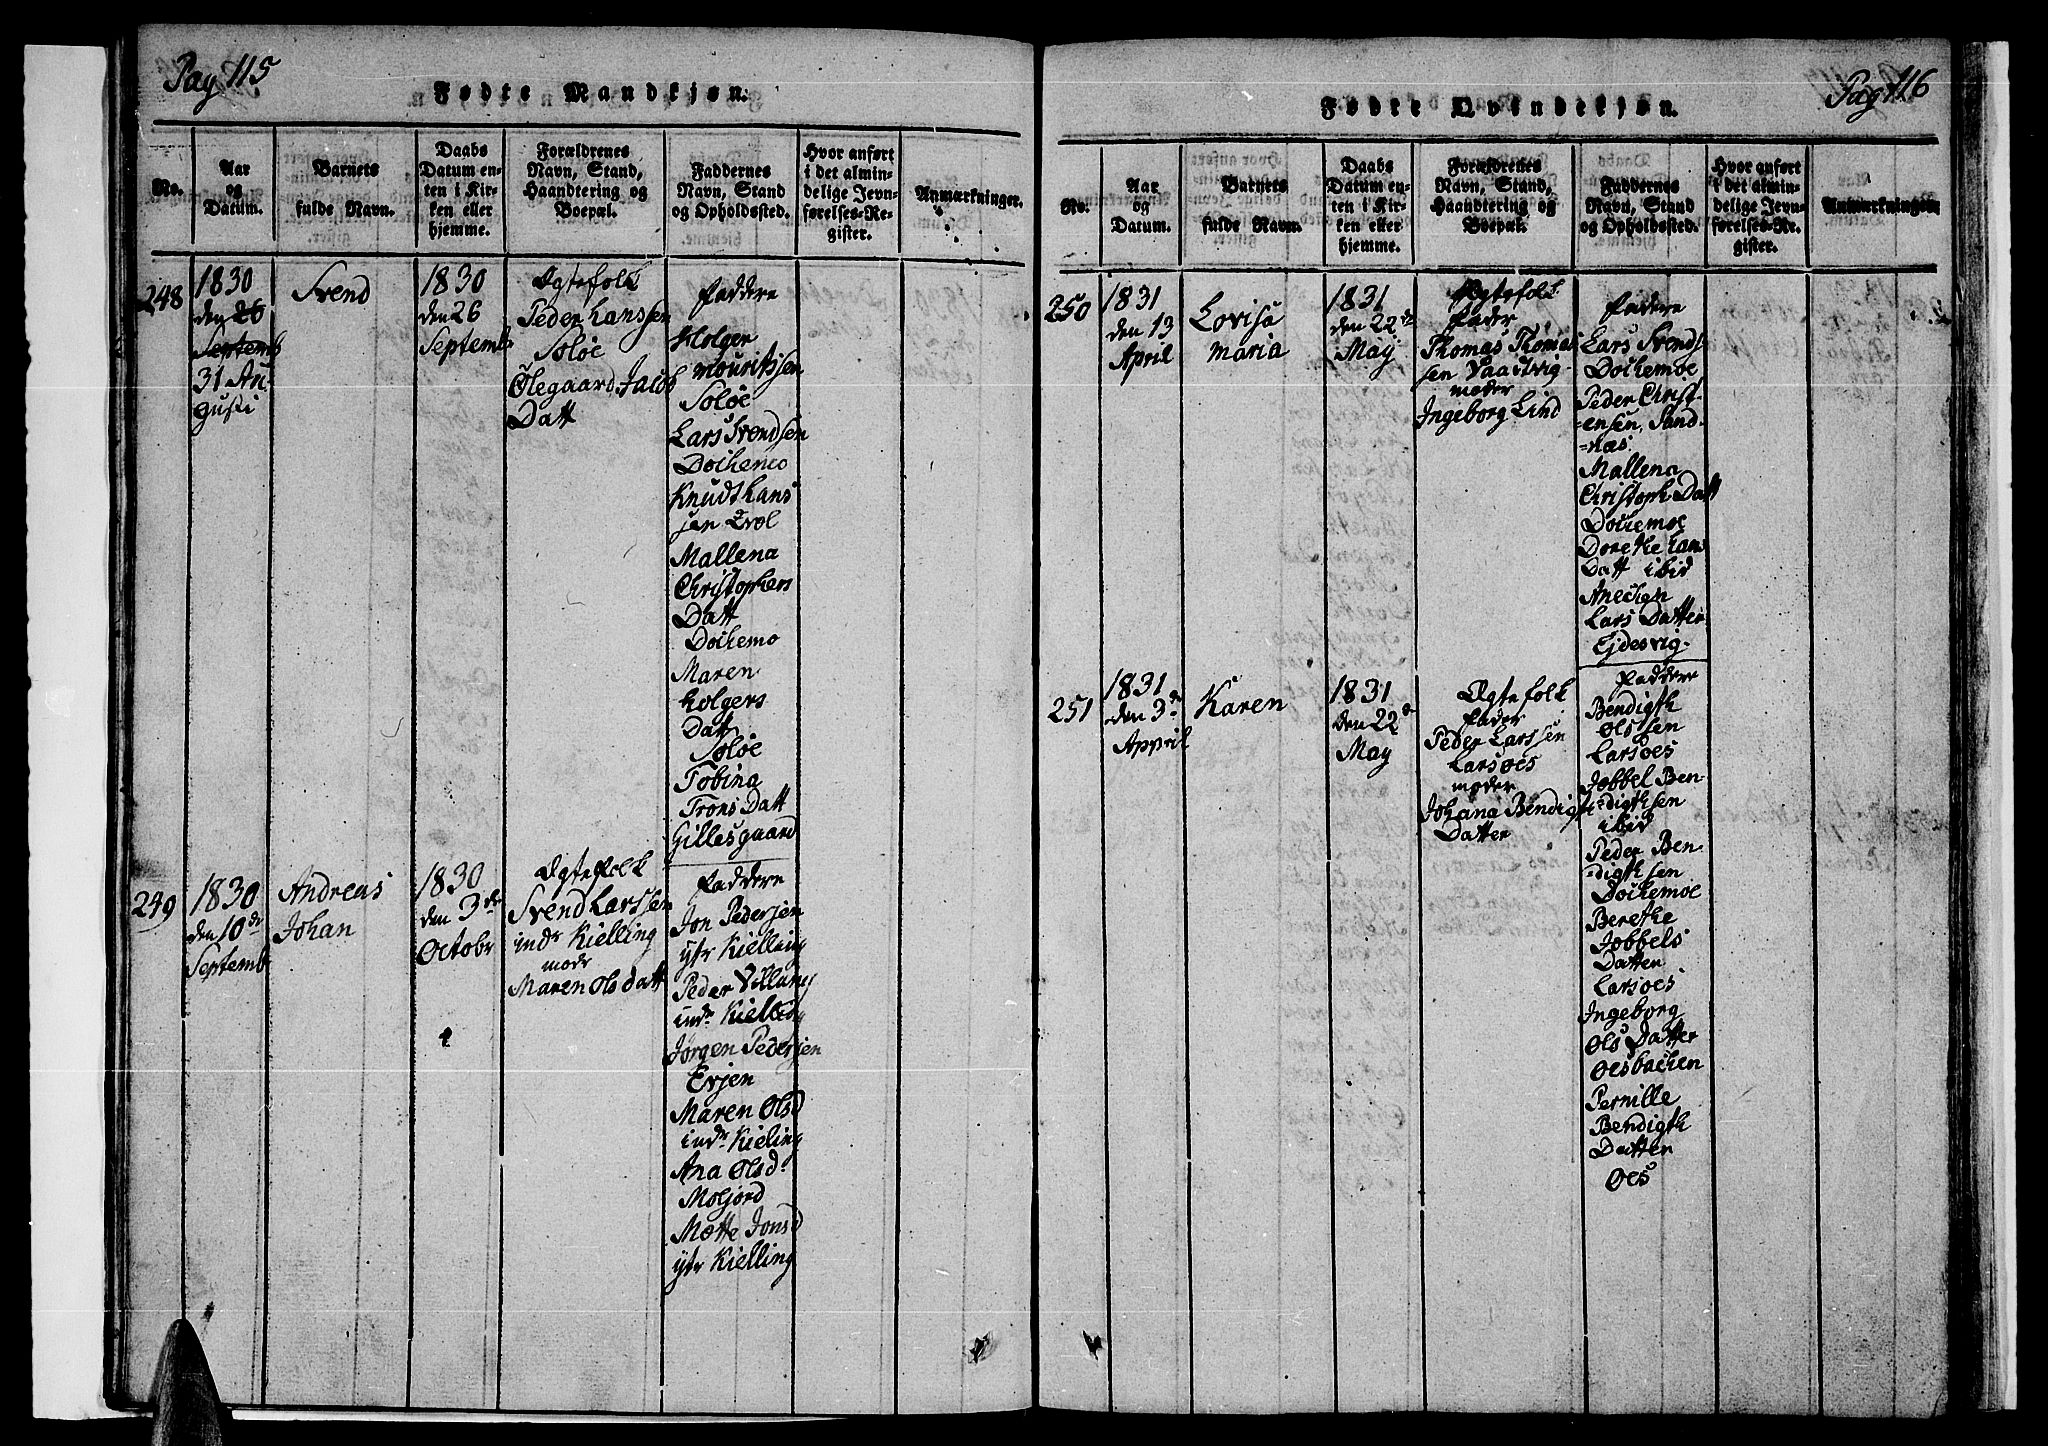 Pag 115
Fødte Mandkjøn.
No.
Aar
og
Datum.
Barnets
fulde Navn.
Daabs
Datum en-
ten i Kir-
ken eller
hjemme.
Forældrenes
Navn, Stand,
Haandtering og
Boepæl.
Faddernes
Navn, Stand
og Opholdssted.
Hvor anført
i det almin-
delige Jevn-
førelses-Re-
gister.
Anmærkninger.
248
1830
den 26
Septemb
31 Au-
gusti
Svend
1830
den 26
Septembr
Ægtefolk
Peder Hanssen
Soløe
Ølegaard Jacob
Datt
Faddere
Holger
Mouritssen
Soløe
Lars Svendsen
Dochemo
Knudt Hans
sen Evol
Mallena
Christophers
Datt
Dochemo
Maren
Holgers
Datt
Soløe
Tobina
Trons Datt
Gillesgaard
249
1830
den 10de
Septemb
Andreas
Johan
1830
den 3de
Octobr
Ægtefolk
Svend Larssen
indr Kielling
modr
Maren Ols datt
Faddere
Jon Pedersen
ytr Kielling
Peder Villumg
indr Kielling
Jørgen Pedersen
Evjen
Maren Olsd
indr Kieling
Ana Olsd
Moljord
Mætte Jonsd
ytr Kielling
Pag 116
Fødte Qvindekjøn.
No.
Aar
og
Datum.
Barnets
fulde Navn.
Daabs
Datum en-
ten i Kir-
ken eller
hjemme.
Forældrenes
Navn, Stand,
Haandtering og
Boepæl.
Faddernes
Navn, Stand
og Opholdssted.
Hvor anført
i det almin-
delige Jevn-
førelses-Re-
gister.
Anmærkninger.
250
1831
den 13
April
Lovisa
Maria
1831
den 22de
May
Ægtefolk
Fader
Thomas Thomas
sen Saardvig
moder
Ingeborg Lind
Fadere
Lars Svends
Dochemoe
Peder Christ-
=ensen, Sand-
=næs
Mallena
Christoph Datt
Dochemoe
Dorethe Hans
Datt ibid
Anechen
Lars Datter
Ejdesvig
251
1831
den 3de
Appril
Karen
1831
den 22de
May
Ægtefolk
Fader
Peder Larssen
Larsoes
moder
Johana Bendigth
Datter
Faddere
Bendigth
Olssen
Larsoes
Jobbel Ben-
=digthsen
ibid
Peder Ben
=digthsen
Dochemoe
Berethe
Jobbels
Datter
Larsoes
Ingeborg
Ols Datter
Oesbachen
Pernille
Bendigth
Datter
Oes